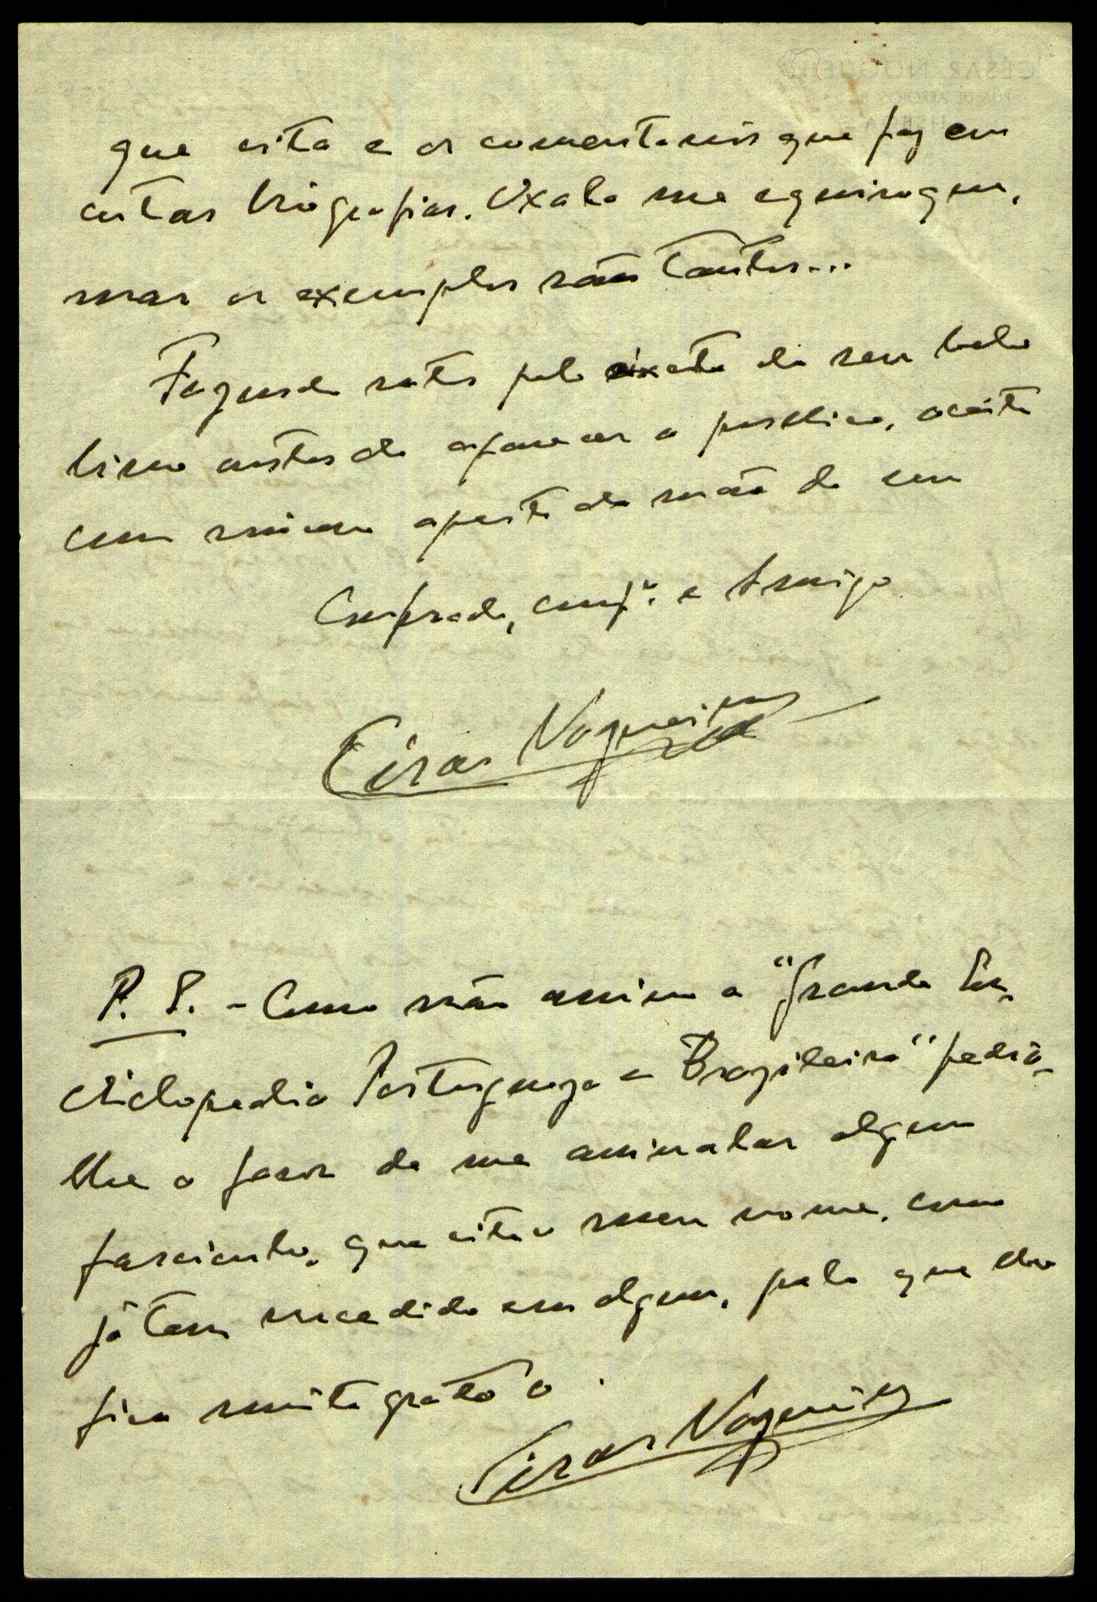 que cita e os comentarios que faz em
certas biografias. Oxalá me equivoque,
mas os exemplos são tantos...
Fazendo votos pelo exito do seu belo
livro antes de aparecer a publico, aceite
com um aperto de mão do seu
Confrade, e Amigo
César Nogueira
P. S. - Como não assino a "Grande En-
ciclopedia Portugueza e Brazileira" pedia-
lhe o favor de me assinalar algum
fasciculo, que cite o meu nome, como
já tem sucedido em algum, pelo que lhe
fica muito grato o
César Nogueira
CÉSAR NOGUEIRA